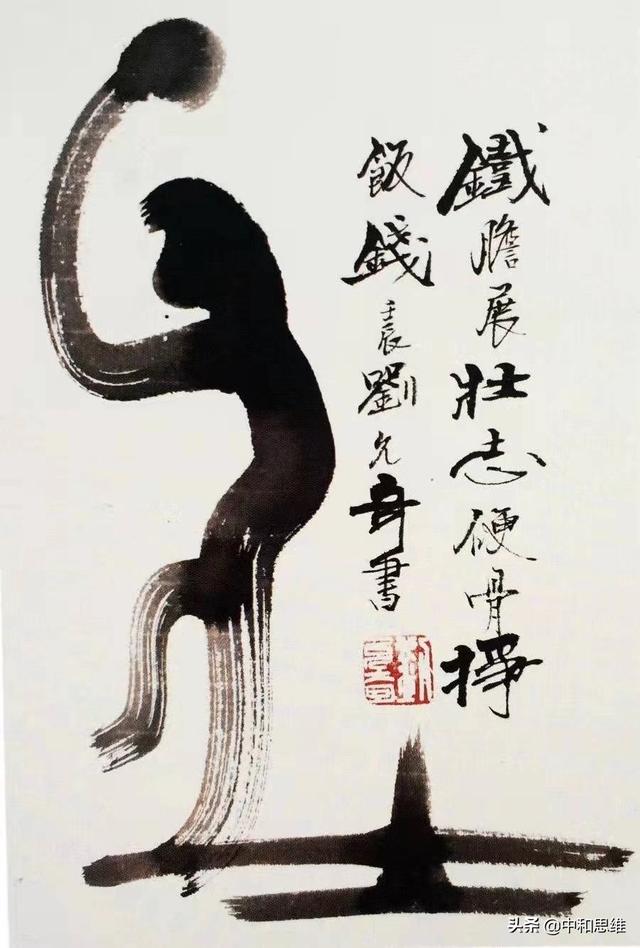 鐵膽展壯志硬骨掙
飯錢壬辰劉允奇書
头条 @中和思维